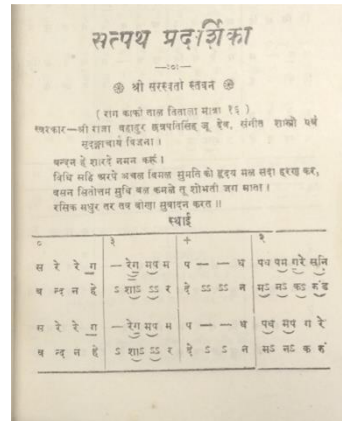 सत्पथ प्रदर्शिका
—:०:—
श्री सरस्वती स्तवन
( राग काफी ताल तिताला मात्रा १६ )
स्वरकार—श्री राजा बहादुर छत्रपतिसिंह जू देव, संगीत शास्त्री एवं
मृदङ्गाचार्य बिजना ।
वन्दन हे शारदे नमन करूँ ।
विधि सहि अरपे अचल विमल सुमति को हृदय मल सदा हरण कर,
वसन सितोत्तम सुचि बल कमले तू शोभती जग माता ।
रसिक मधुर तर तव वीणा सुवादन करत ॥
स्थाई
० ३ + २
स रे रे ग — रेग मप म प — — ध पध पम गरे सनि
व न्द न हे ऽ शाऽ ऽऽ र दे ऽऽ ऽऽ न मऽ नऽ कऽ रुंऽ
स रे रे ग — रेग मप म प — — ध पध मप ग रे
व न्द न हे ऽ शाऽ ऽऽ र दे ऽ ऽ न मऽ नऽ क रुं